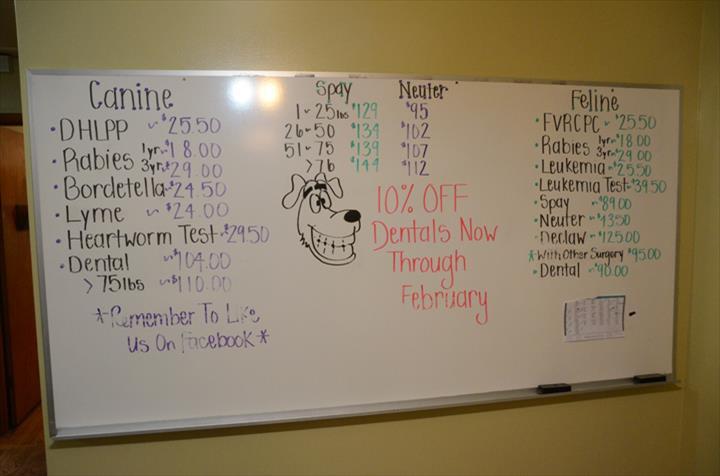 Canine
• DHLPP ~ $25.50
• Rabies 1yr ~ $18.00
3yr ~ $29.00
• Bordetella ~ $24.50
• Lyme ~ $24.00
• Heartworm Test ~ $29.50
• Dental ~ $104.00
> 75lbs ~ $110.00
*Remember To Like
Us On Facebook*
Spay Neuter
1 - 25lbs $129 $95
26 - 50 $134 $102
51 - 75 $139 $107
> 76 $144 $112
10% OFF
Dentals Now
Through
February
Feline
• FVRCPC ~ $25.50
• Rabies 1yr ~ $18.00
3yr ~ $29.00
• Leukemia ~ $25.50
• Leukemia Test ~ $39.50
• Spay ~ $89.00
• Neuter ~ $43.50
• Declaw ~ $125.00
*With Other Surgery $95.00
• Dental ~ $90.00